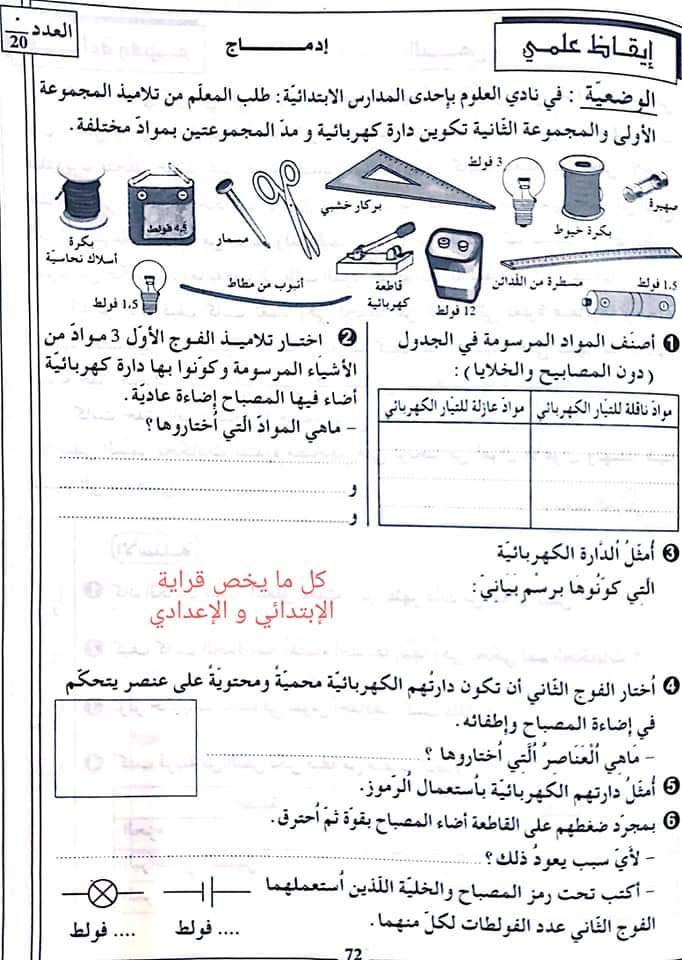 إيقاظ علمي
إدمــــاج
العدد
20
الوضعيّة : في نادي العلوم بإحدى المدارس الابتدائيّة: طلب المعلّم من تلاميذ المجموعة
الأولى والمجموعة الثّانية تكوين دارة كهربائية و مدّ المجموعتين بموادّ مختلفة.
صهيرة
بكرة خيوط
3 فولط
بركار خشبي
مسمار
4,5 فولط
بكرة
أسلاك نحاسيّة
1,5 فولط
مسطرة من اللّدائن
12 فولط
قاطعة
كهربائية
أنبوب من مطّاط
1,5 فولط
1 أصنّف المواد المرسومة في الجدول
(دون المصابيح والخلايا) :
موادّ ناقلة للتيّار الكهربائي
موادّ عازلة للتيّار الكهربائي
2 اختـار تلاميـذ الفـوج الأوّل 3 موادّ من
الأشياء المرسومة وكوّنوا بها دارة كهربائيّة
أضاء فيها المصباح إضاءة عاديّة.
– ماهي الموادّ الّتي اُختاروها ؟
و
و
3 أُمثّلُ اُلدّارة الكهربائيّة
الّتي كوّنُوهَا برسْمٍ بَيَانِيّ:
كل ما يخص قراية
الإبتدائي و الإعدادي
4 اُختار الفوج الثّاني أن تكون دارتُهم الكهربائيّة محميّةً ومحتويةً على عنصر يتحكّم
في إضاءة المصباح وإطفائه.
– مَاهِي اُلْعَنَاصِرُ اُلَّتِي اُختاروها ؟
5 أُمثّلُ دارتهم الكهربائيّة باُستعمال اُلرّموز.
6 بمجرّد ضغطهم على القاطعة أضاء المصباح بقوّة ثمّ اُحترق.
– لأيّ سبب يعودُ ذلك ؟
– أكتب تحت رمز المصباح والخليّة اللّذين اُستعملهما
الفوج الثّاني عدد الفولطات لكلّ منهما.
.... فولط
.... فولط
72